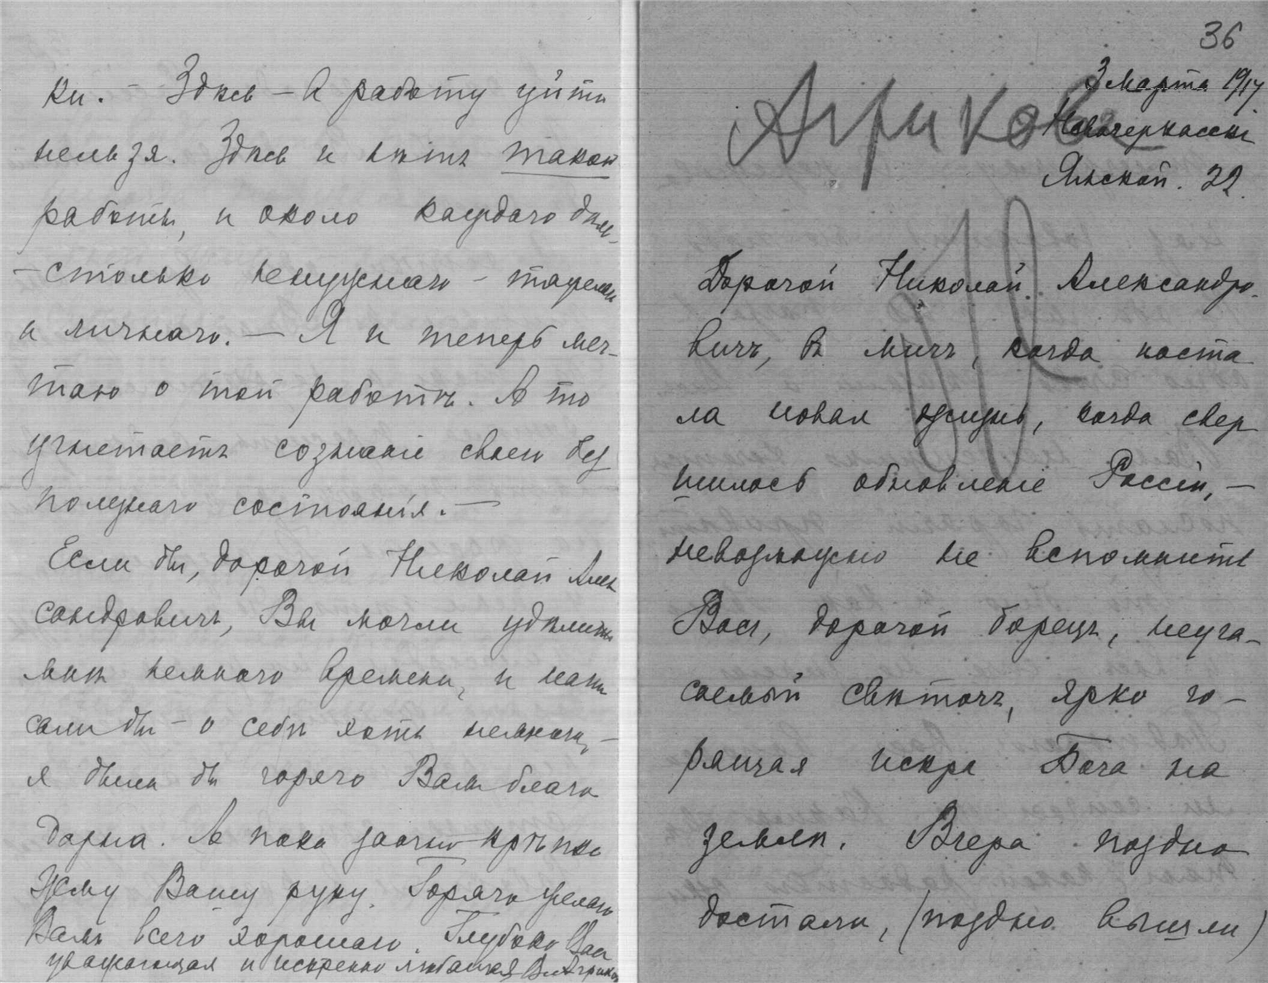 ки. – Здѣсь – А работу уйти
нельзя. Здѣсь и нѣтъ такой
работы, и около каждаго дѣла
– столько ненужнаго –
и личнаго. – Я и теперь меч-
таю о той работѣ. А то
угнетаетъ сознаніе своего без
полезнаго состоянія. –
Если бы, дорогой Николай Алек
сандровичъ, Вы могли удѣлить
мнѣ немного времени, и напи
сали бы – о себѣ хоть немного, –
я была бы горячо Вамъ благо
дарна. А пока заочно крѣпко
жму Вашу руку. Горячо желаю
Вамъ всего хорошаго. Глубоко Васъ
уважающая и искренно любящая В. Агрикова
36
Агрикова
3 Марта 19/17
Новочеркасскъ
Ямской. 22
Дорогой Николай Александро-
вичъ, въ мигъ, когда наста
ла новая жизнь, когда свер
шилось обновленіе Россіи, –
невозможно не вспомнить
Васъ, дорогой борецъ, неуга-
саемый свѣточъ, ярко го-
рящая искра Бога на
землѣ. Вчера поздно
достали, (поздно вышли)